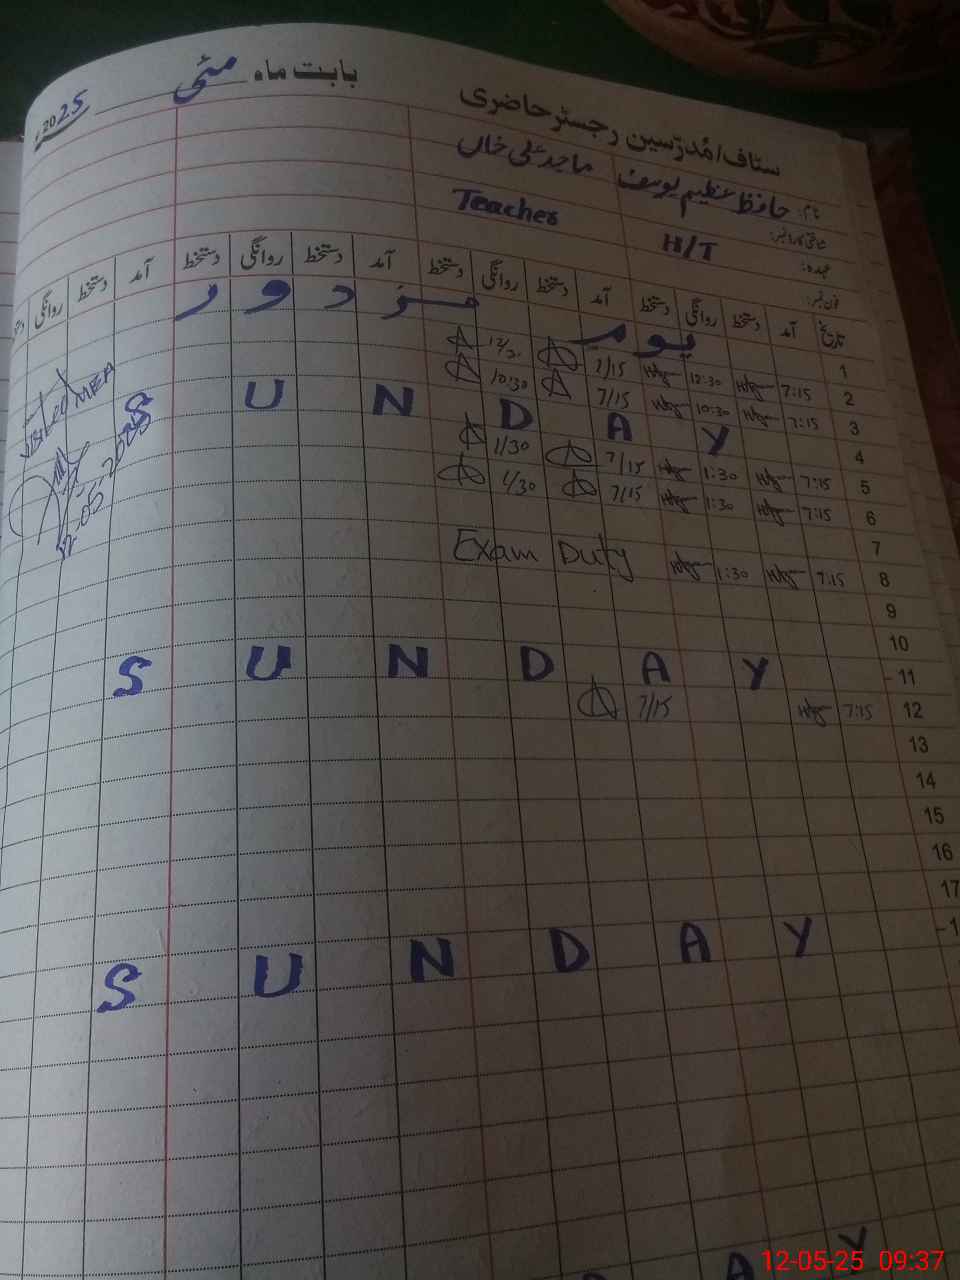 سٹاف/مُدرّسین رجسٹر حاضری بابت ماہ مئی 2025ء
نام: حافظ عظیم یوسف ماجد علی خاں
شناختی کارڈ نمبر:
عہدہ: H/T Teacher
فون نمبر:
تاریخ آمد دستخط روانگی دستخط آمد دستخط روانگی دستخط آمد دستخط روانگی دستخط آمد دستخط روانگی
1 یوم مزدور
2 7:15 12:30 7/15 12/30
3 7:15 10:30 7/15 10:30
4 SUNDAY
5 7:15 1:30 7/15 1/30
6 7:15 1:30 7/15 1/30
7
8 7:15 1:30 Exam Duty
9
10
11 SUNDAY
12 7:15 7/15
13
14
15
16
17
SUNDAY
Visited MEA
12-05-2025
A Y
12-05-25 09:37